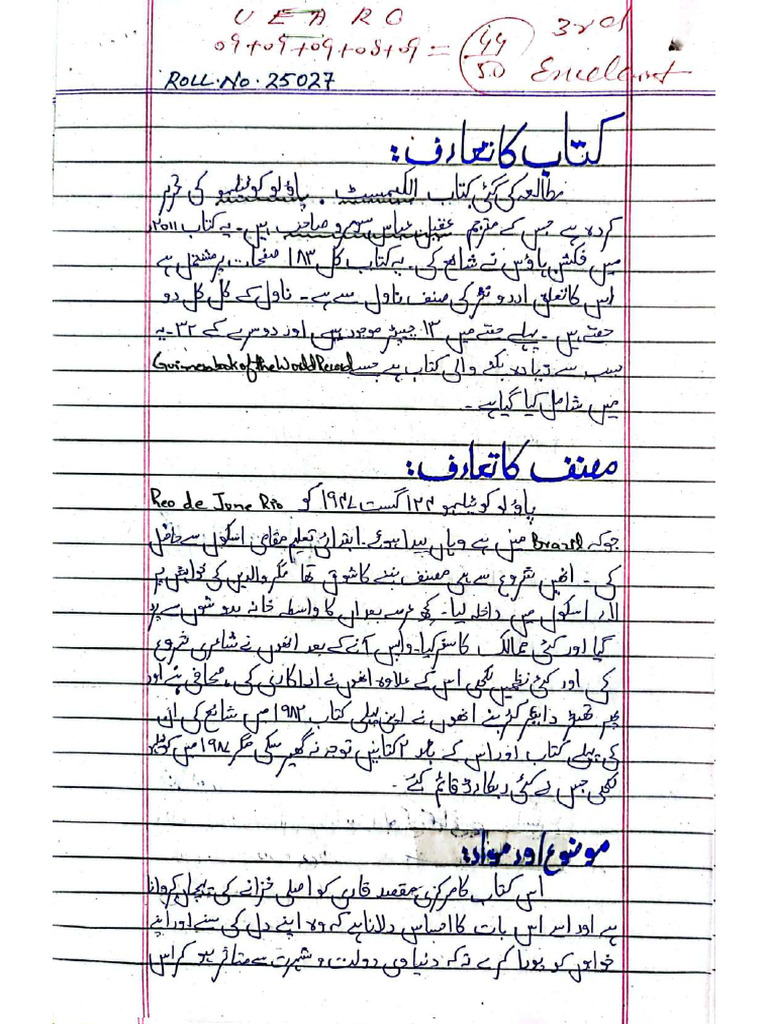 U E A R O
09+09+09+08+09 = 44/50 3rd
Excellent
ROLL.No.25027
کتاب کا تعارف:
مطالعہ کی گئی کتاب الکیمسٹ ، پاؤلو کوئیلہو کی تحریر
کردہ ہے جس کے مترجم عقیل عباس سومرو صاحب ہیں۔ یہ کتاب ۲۰۱۱ء
میں فکشن ہاؤس نے شائع کی۔ یہ کتاب کل ۱۸۳ صفحات پر مشتمل ہے
اس کا تعلق اردو نثر کی صنف ناول سے ہے۔ ناول کے کل کل دو
حصّے ہیں۔ پہلے حصّے میں ۱۳ چیپٹر موجود ہیں اور دوسرے کے ۳۲۔ یہ
سب سے زیادہ بکنے والی کتاب ہے جسے Guinness book of the World Record
میں شامل کیا گیا ہے۔
مصنف کا تعارف:
پاؤلو کوئیلہو ۲۴ اگست ۱۹۴۷ کو Reo de June Rio
جوکہ Brazil میں ہے وہاں پیدا ہوئے۔ ابتدائی تعلیم مقامی اسکول سے حاصل
کی۔ انھیں شروع سے ہی مصنف بننے کا شوق تھا مگر والدین کی خواہش پر
لاء اسکول میں داخلہ لیا۔ کچھ عرصے بعد ان کا واسطہ خانہ بدوشوں سے پڑ
گیا اور کئی ممالک کا سفر کیا۔ واپس آنے کے بعد انھوں نے شاعری شروع
کی اور کئی نظمیں لکھی اس کے علاوہ انھوں نے اداکاری کی، صحافی بنے اور
پھر تھیٹر ڈائریکٹر بنے انھوں نے اپنی پہلی کتاب ۱۹۸۲ میں شائع کی ان
کی پہلی کتاب اور اس کے بعد ۲ کتابیں توجہ نہ گھیر سکی مگر ۱۹۸۷ میں
لکھی جس نے کئی ریکارڈ قائم کئے۔
موضوع اور مواد:
اس کتاب کا مرکزی مقصد قاری کو اصلی خزانے کی پہچان کروانا
ہے اور اسے اس بات کا احساس دلانا ہے کہ وہ اپنے دل کی سنے اور اپنے
خوابوں کو پورا کرے نہ کہ دنیاوی دولت و شہرت سے متاثر ہو کر اس